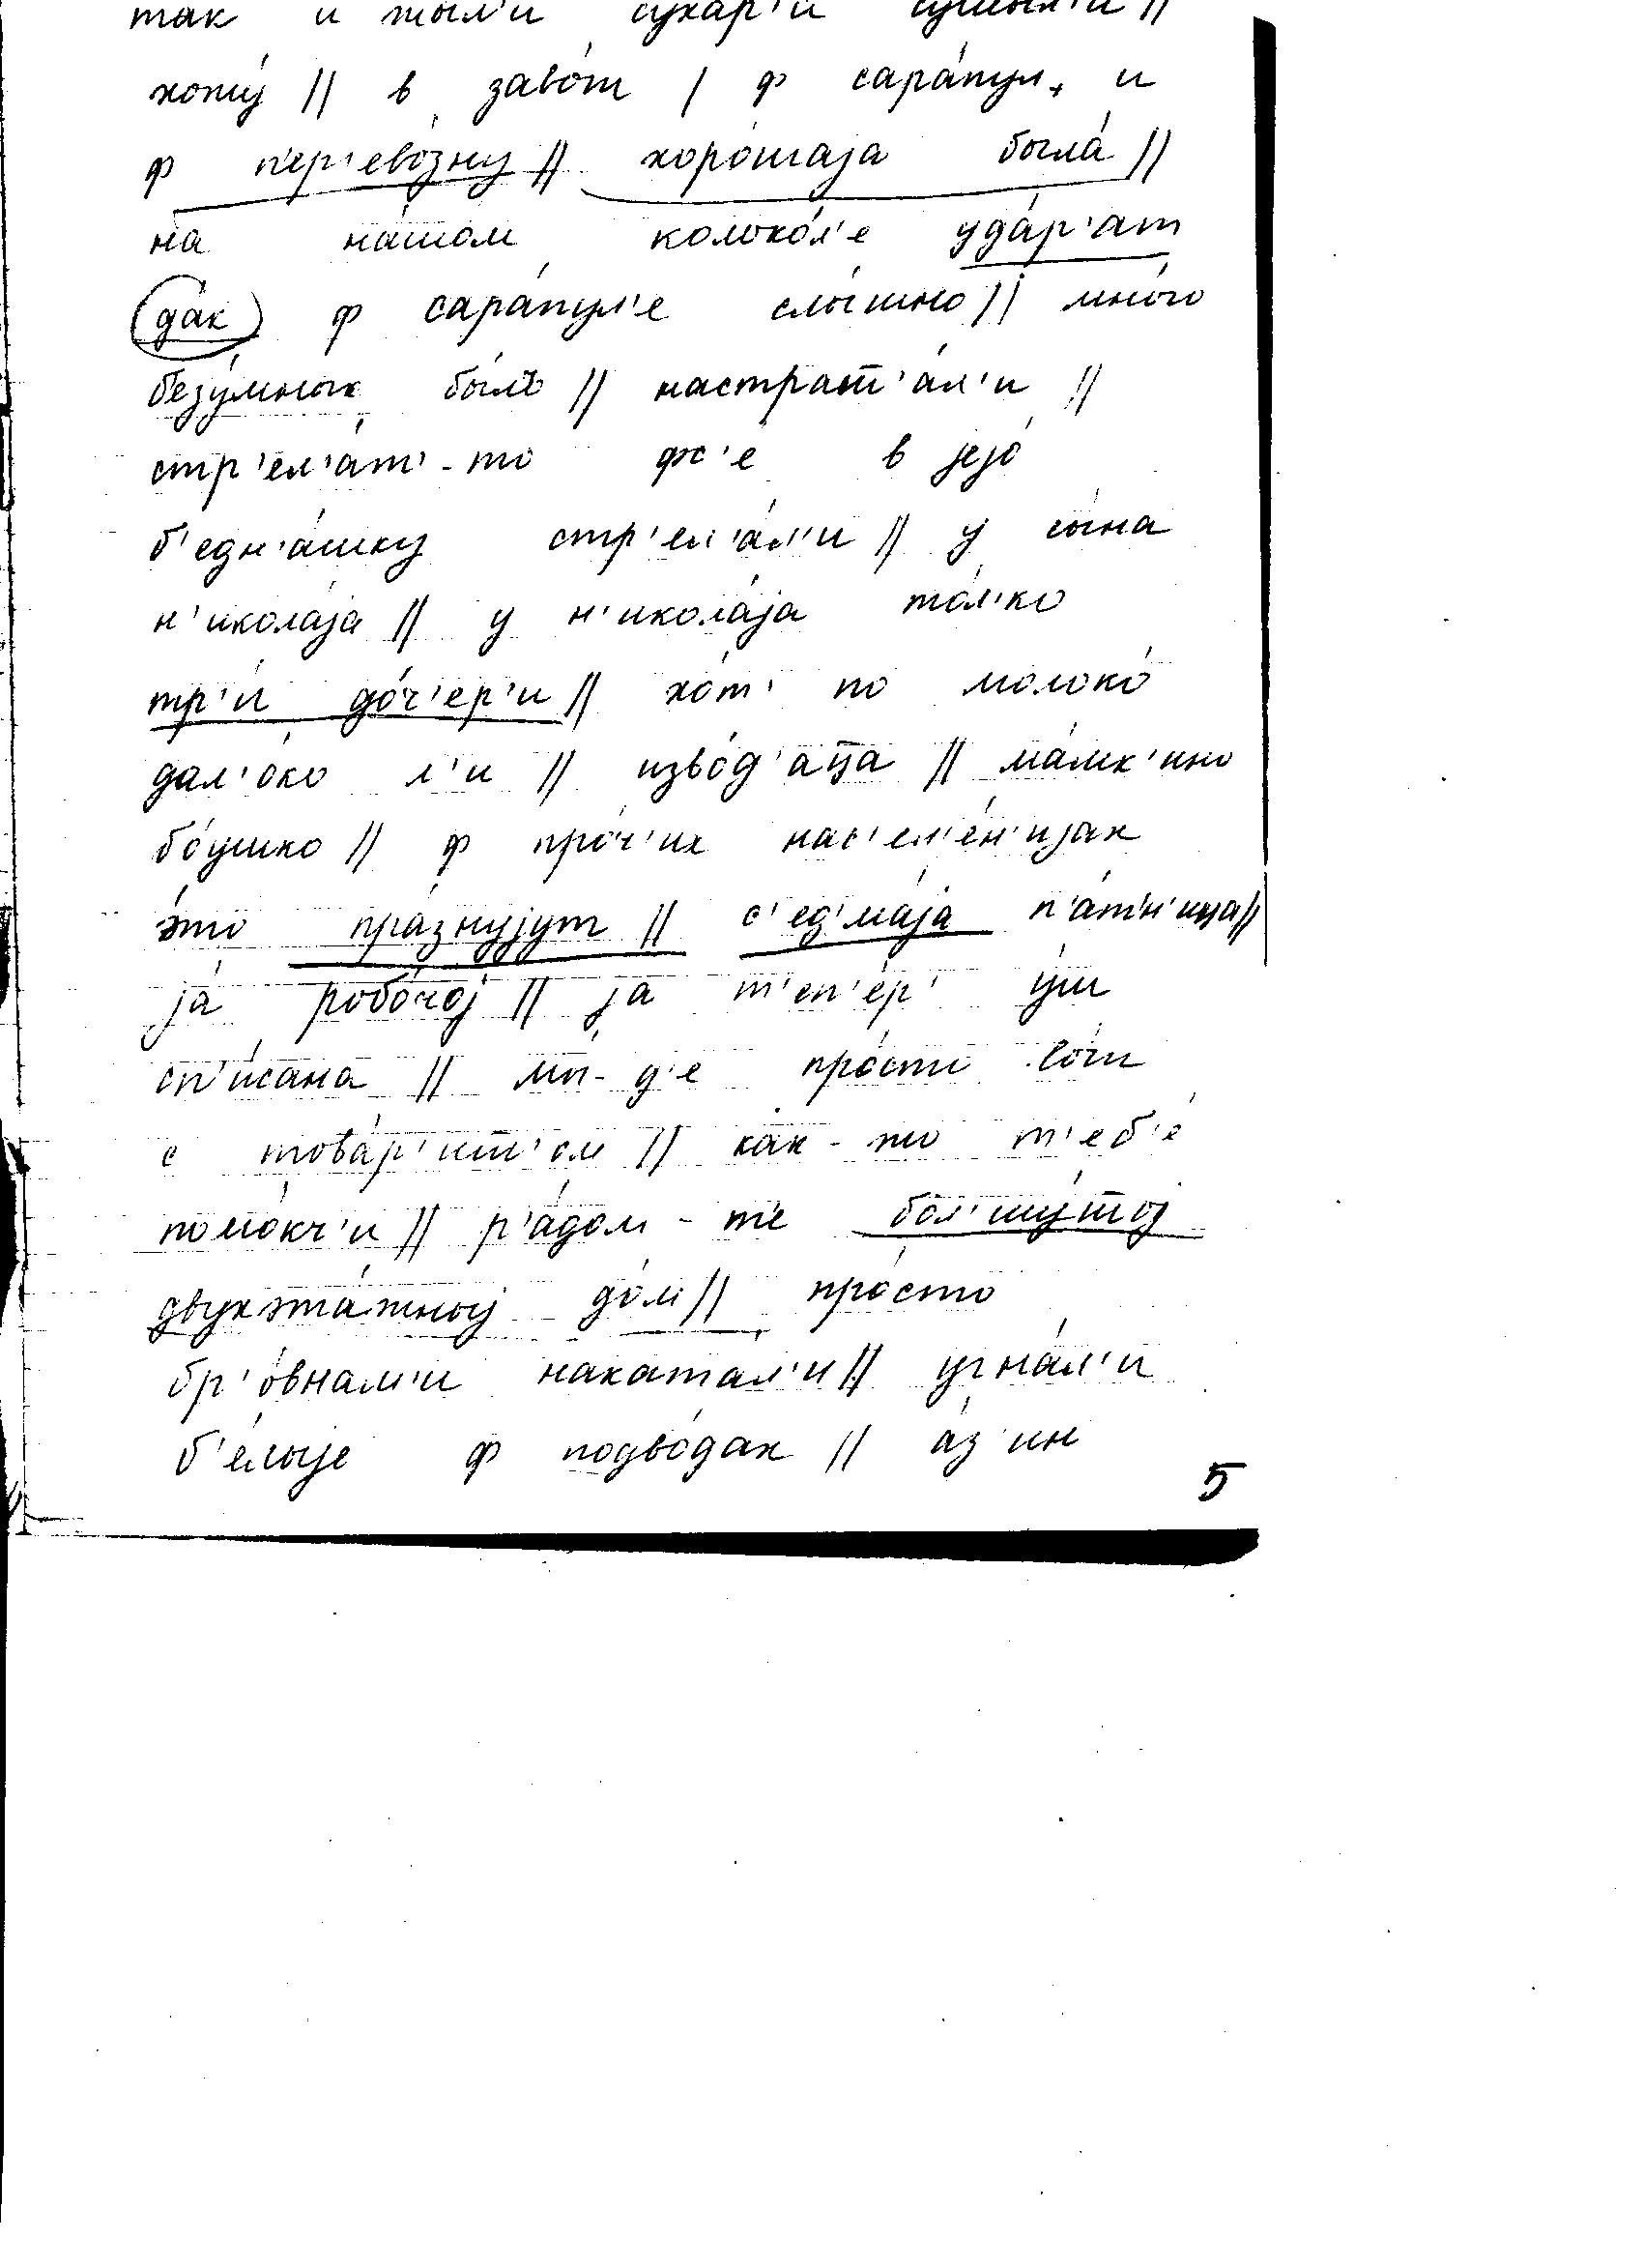 так и жыл'и сухар'и сушыл'и //
хожу́ // в заво́т / ф сара́пул, и
ф п'ер'ево́зну // хоро́шаја была́ //
на на́шом колоко́л'е уда́р'ат
да́к ф сара́пул'е слы́шно // мно́го
безу́мных бы́лъ // настрат'а́л'и //
стр'ел'а́т'-то фс'е́ в јејо́
б'едн'а́шку стр'ел'а́л'и // у сы́на
н'икола́ја // у н'икола́ја то́л'ко
тр'и́ до́ч'ер'и // хо́т' по молоко́
дал'о́ко л'и // изво́д'аца // ма́мк'ино
бо́ушко // ф про́ч'их нас'ел'е́н'ијах
э́то пра́знујут // с'ед'ма́ја п'а́т'н'ица //
ја́ робо́чој // ја т'еп'е́р' у́ш
сп'и́сана // мы-д'е про́сто
с това́р'ищ'ом // ка́к-то т'еб'е́
помо́кч'и // р'а́дом-т'е бол'шу́тој
двухэта́жныј до́м // про́сто
бр'о́внам'и наката́л'и // угна́л'и
б'е́лыје ф подво́дах // а́з'ин
5